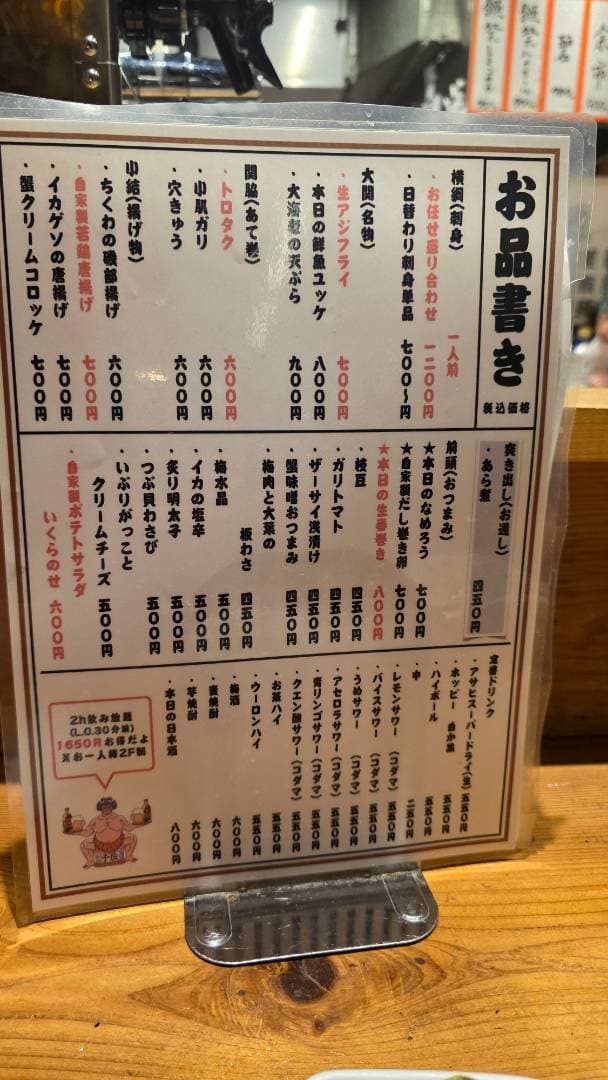 お品書き
税込価格
横綱(刺身)
・お任せ盛り合わせ 一人前 一二〇〇円
・日替わり刺身単品 七〇〇〜円
大関(名物)
・生アジフライ 七〇〇円
・本日の鮮魚ユッケ 八〇〇円
・大海老の天ぷら 九〇〇円
関脇(あて巻)
・トロタク 六〇〇円
・小肌ガリ 六〇〇円
・穴きゅう 六〇〇円
小結(揚げ物)
・ちくわの磯部揚げ 六〇〇円
・自家製若鶏唐揚げ 七〇〇円
・イカゲソの唐揚げ 七〇〇円
・蟹クリームコロッケ 七〇〇円
突き出し(お通し)
・あら煮 四五〇円
前頭(おつまみ)
★本日のなめろう 七〇〇円
★自家製だし巻き卵 七〇〇円
★本日の生春巻き 八〇〇円
・枝豆 四五〇円
・ガリトマト 四五〇円
・ザーサイ浅漬け 四五〇円
・蟹味噌おつまみ 四五〇円
・梅肉と大葉の
板わさ 四五〇円
・梅水晶 五〇〇円
・イカの塩辛 五〇〇円
・炙り明太子 五〇〇円
・つぶ貝わさび 五〇〇円
・いぶりがっこと
クリームチーズ 五〇〇円
・自家製ポテトサラダ
いくらのせ 六〇〇円
定番ドリンク
・アサヒスーパードライ(生) 五五〇円
・ホッピー 白か黒 五五〇円
・ハイボール 五五〇円
・中 二五〇円
・レモンサワー(コダマ) 五五〇円
・バイスサワー(コダマ) 五五〇円
・うめサワー(コダマ) 五五〇円
・アセロラサワー(コダマ) 五五〇円
・青リンゴサワー(コダマ) 五五〇円
・クエン酸サワー(コダマ) 五五〇円
・お茶ハイ 五五〇円
・ウーロンハイ 五五〇円
・梅酒 六〇〇円
・麦焼酎 六〇〇円
・芋焼酎 六〇〇円
・本日の日本酒 八〇〇円
2h飲み放題
(L.O.30分前)
1650円お得だよ
※お一人様2F制